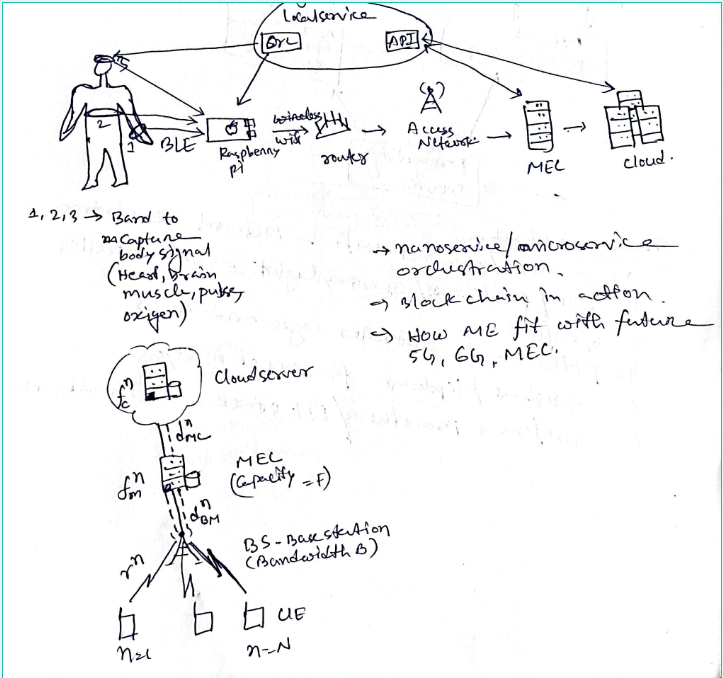 Localservice
API
2
1
BLE
Raspberry
Pi
wireless
wifi
router
Access
Network
MEC
cloud.
1, 2, 3 → Band to
capture
body signal
(Heart, brain
muscle, pulse,
oxigen)
→ nanoservice/microservice
orchestration.
→ Blockchain in action.
→ How ME fit with future
5G, 6G, MEC.
Cloudserver
f_c^n
d_MC^n
MEC
(Capacity = F)
f_m^n
d_BM^n
BS-Base station
(Bandwidth B)
r^n
UE
n=1
n=N